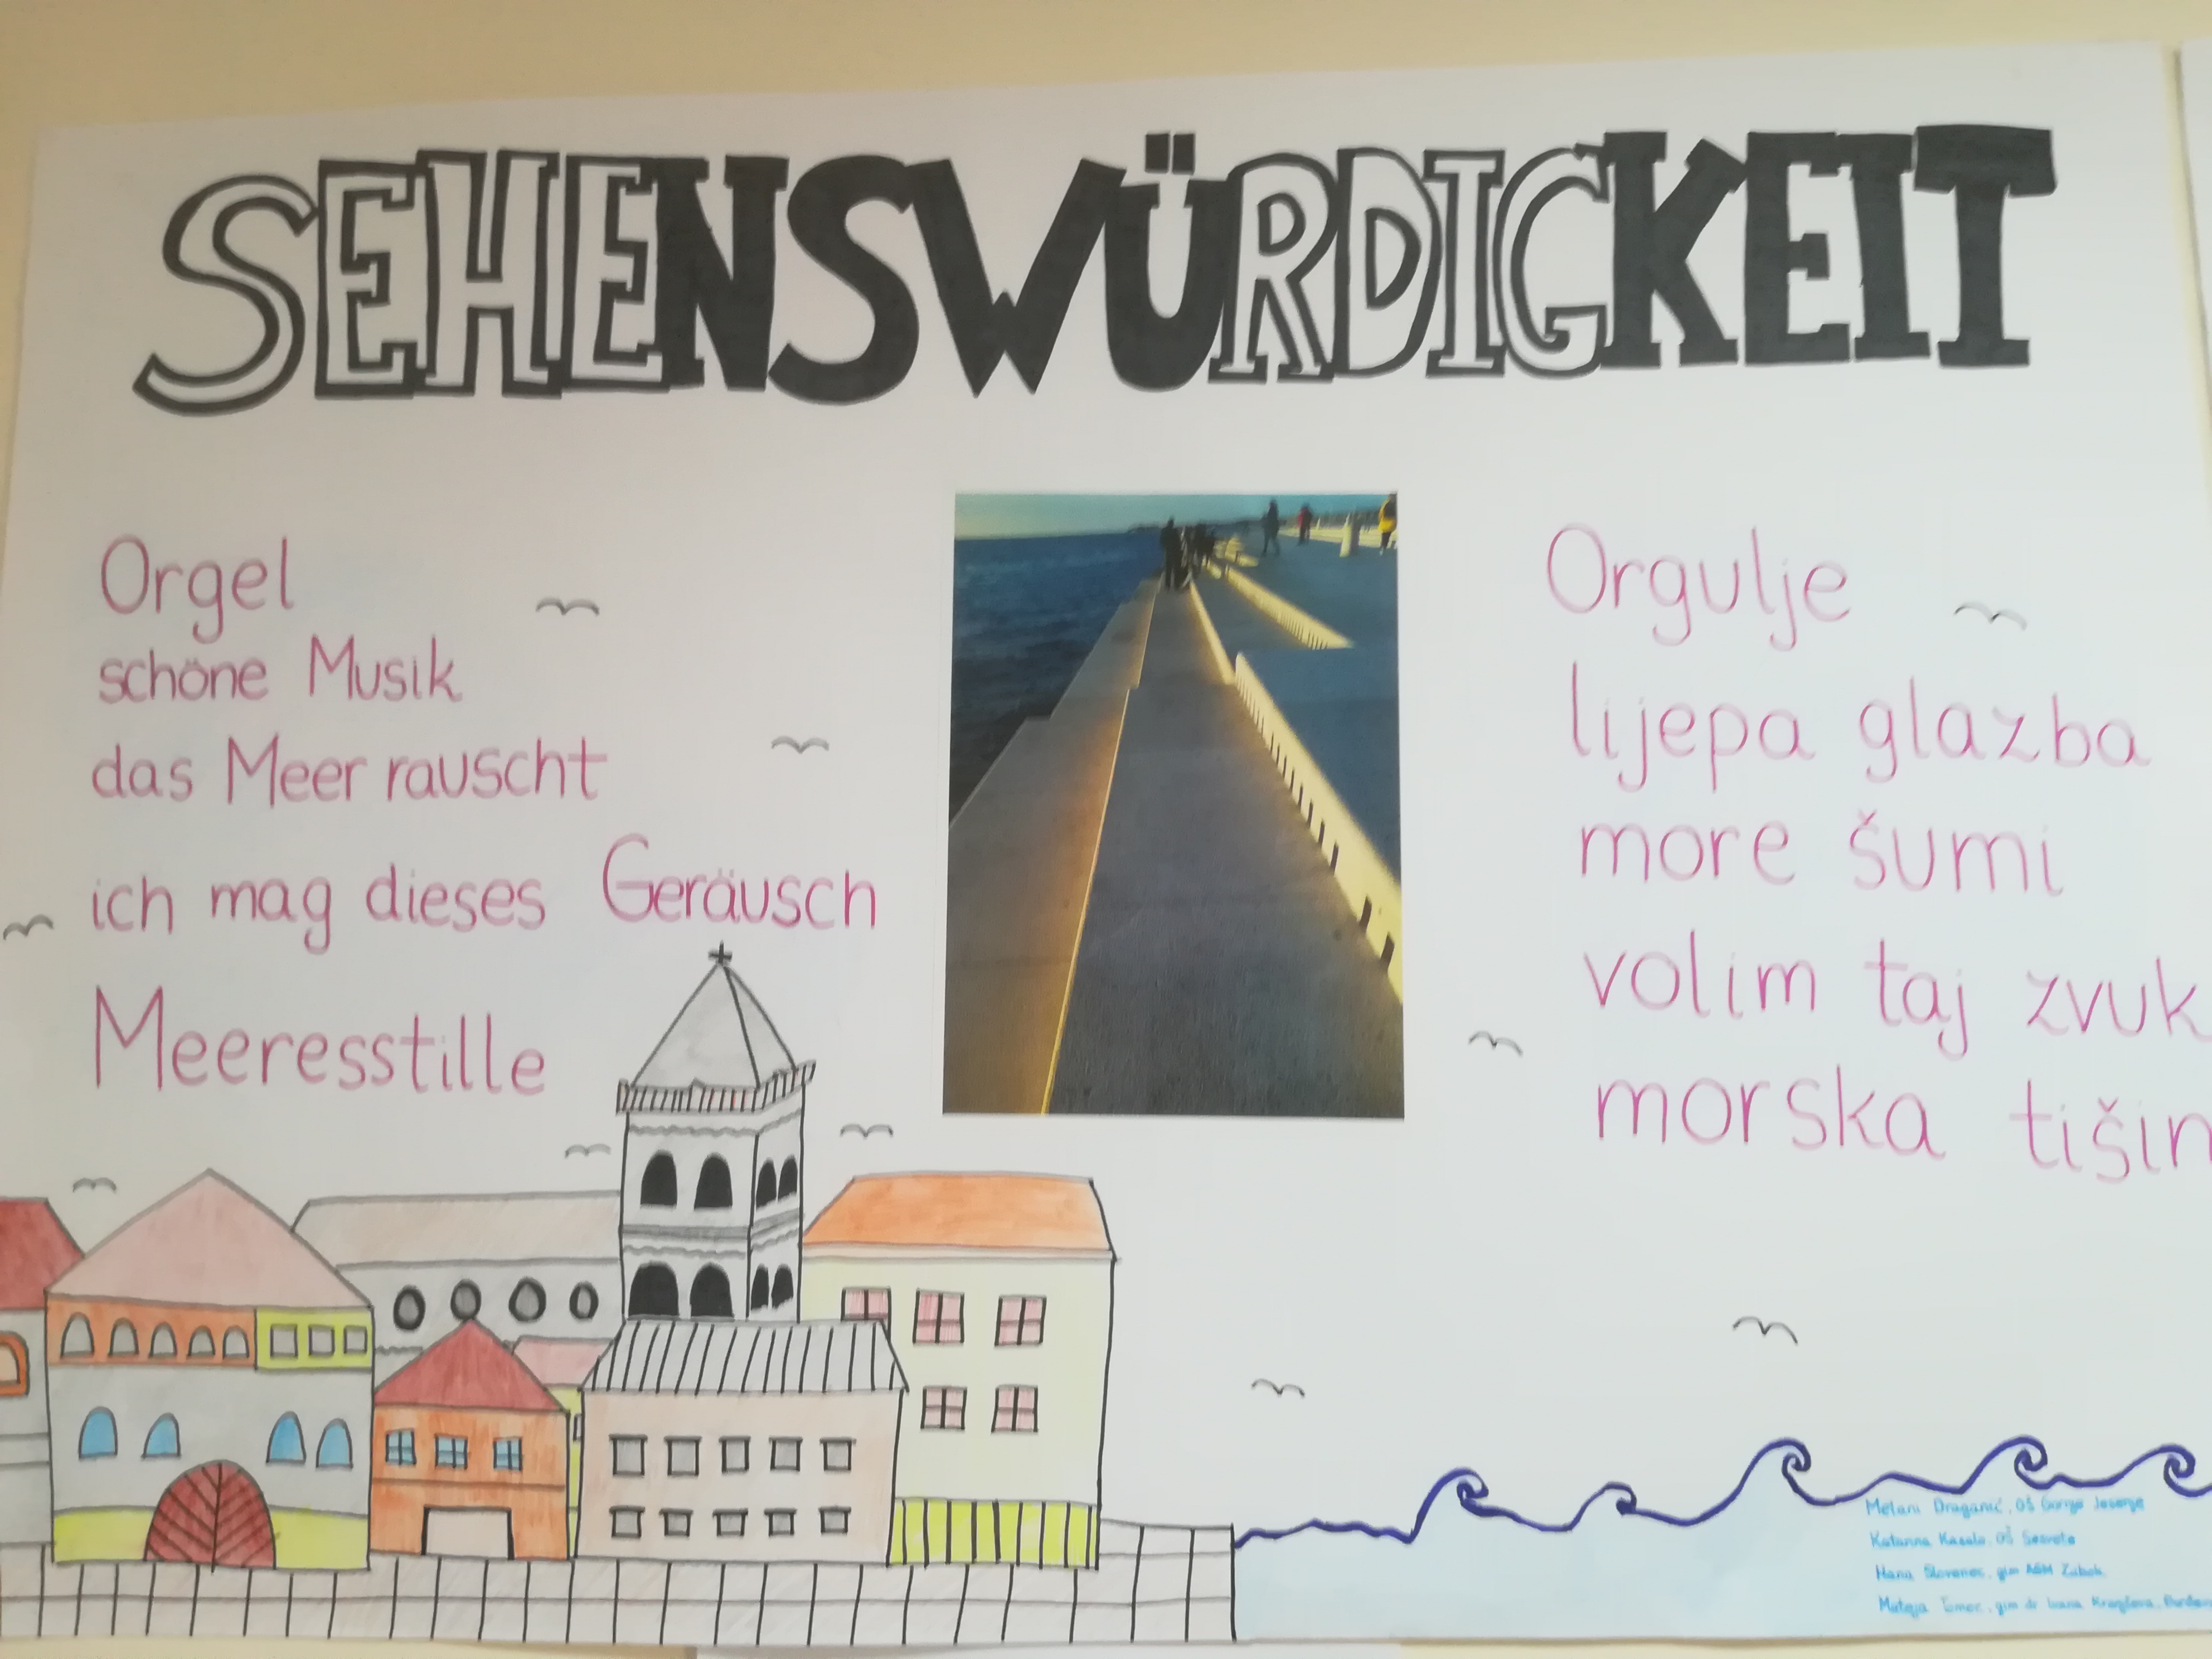 SEHENSWÜRDIGKEIT
Orgel
schöne Musik
das Meer rauscht
ich mag dieses Geräusch
Meeresstille
Orgulje
lijepa glazba
more šumi
volim taj zvuk
morska tišin
Melani Draganić, OŠ Gornje Jesenje
Katarina Kasalo, OŠ Sesvete
Hana Slovenec, gim AGM Zabok
Mateja Tomec, gim dr Ivana Kranjčeva,